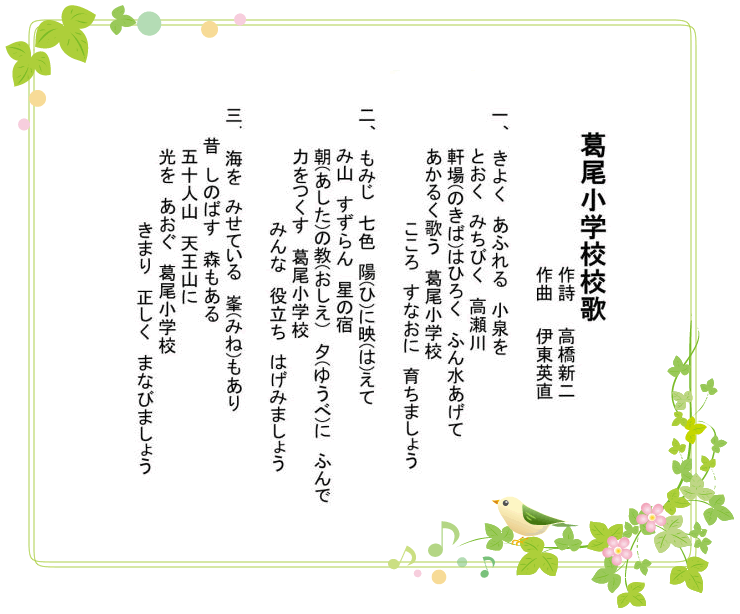 葛尾小学校校歌
作詩　高橋新二
作曲　伊東英直
一、きよく　あふれる　小泉を
とおく　みちびく　高瀬川
軒場(のきば)はひろく　ふん水あげて
あかるく歌う　葛尾小学校
こころ　すなおに　育ちましょう
二、もみじ　七色　陽(ひ)に映(は)えて
み山　すずらん　星の宿
朝(あした)の教(おしえ)　夕(ゆうべ)に　ふんで
力をつくす　葛尾小学校
みんな　役立ち　はげみましょう
三．海を　みせている　峯(みね)もあり
昔　しのばす　森もある
五十人山　天王山に
光を　あおぐ　葛尾小学校
きまり　正しく　まなびましょう